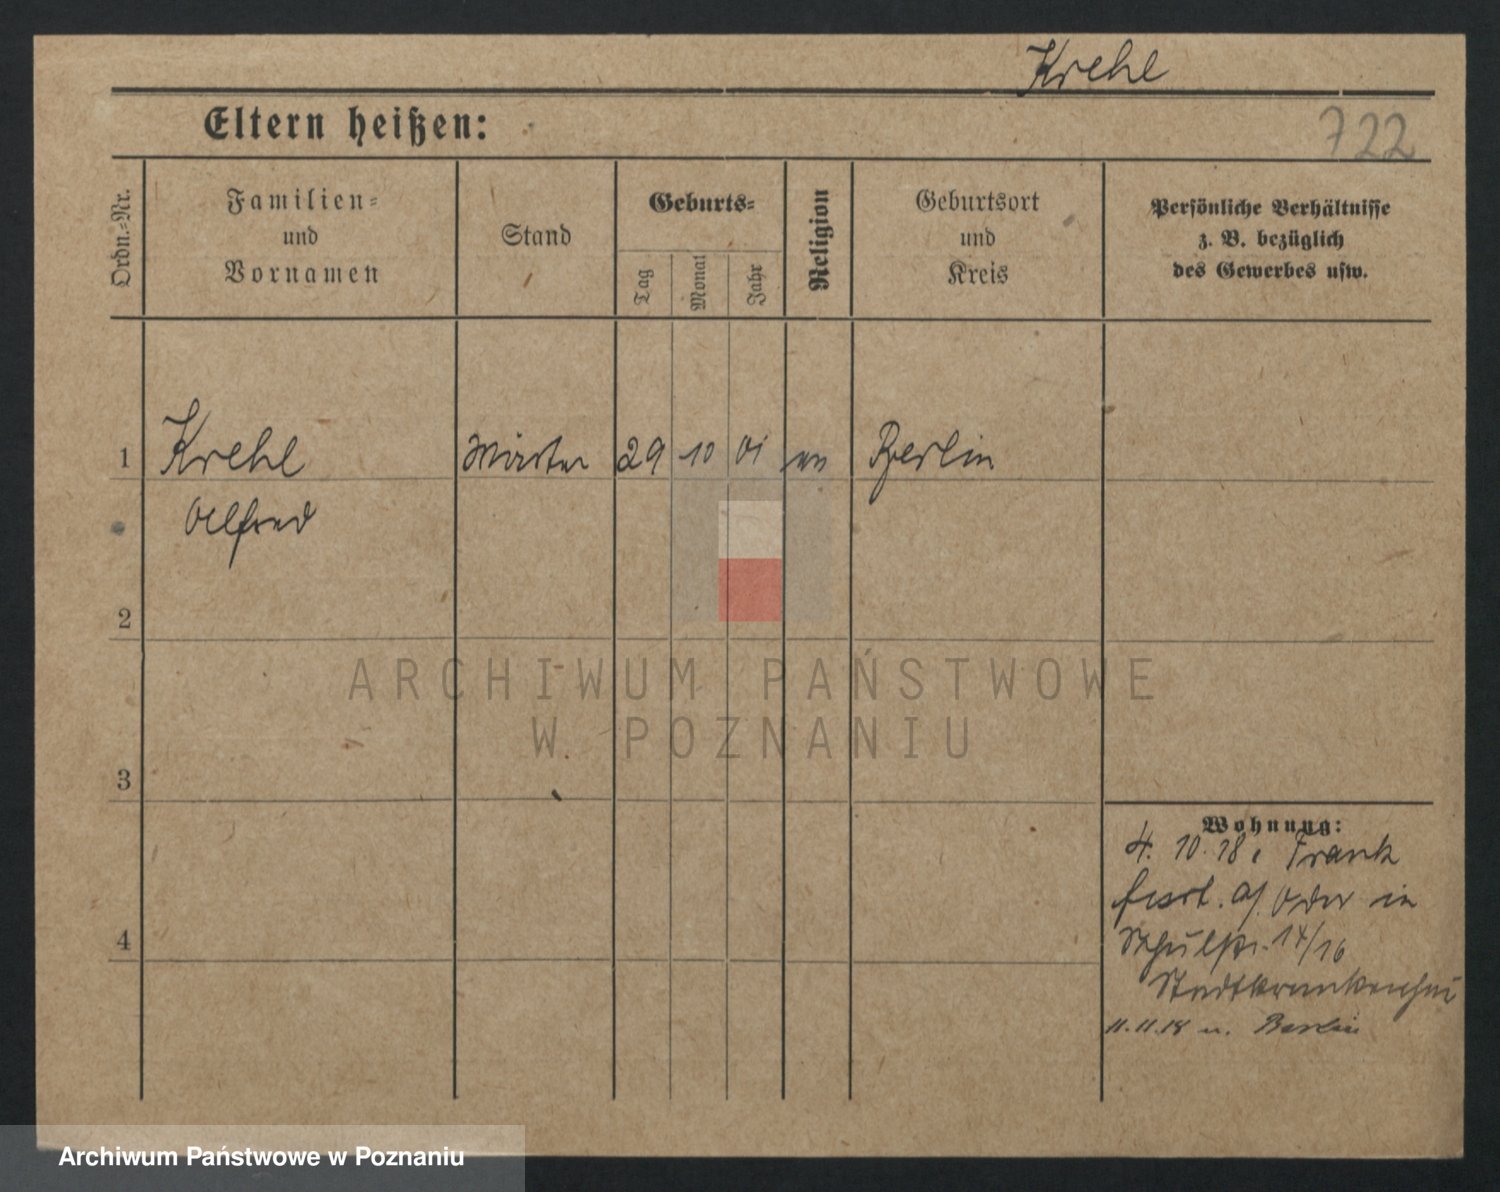 Krehl
Eltern heißen:
722
Ordn.-Nr.
Familien-
und
Vornamen
Stand
Geburts-
Tag
Monat
Jahr
Religion
Geburtsort
und
Kreis
Persönliche Verhältnisse
z. B. bezüglich
des Gewerbes usw.
1 Krehl 29 10 01 ev Berlin
Alfred
2
3
4
Wohnung:
4. 10. 18. Frank
furt. a/ Oder in
Schulstr. 14/16
Stadtkrankenhau
11.11.18 n. Berlin
ARCHIWUM PAŃSTWOWE
W POZNANIU
Archiwum Państwowe w Poznaniu